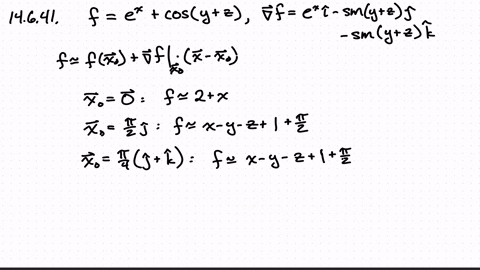 14.6.41. f = eˣ + cos(y+z), ∇⃗f = eˣ î - sin(y+z) ĵ
- sin(y+z) k̂
f ≃ f(x⃗₀) + ∇⃗f|ₓ⃗₀ · (x⃗ - x⃗₀)
x⃗₀ = 0⃗ : f ≃ 2 + x
x⃗₀ = π/2 ĵ : f ≃ x - y - z + 1 + π/2
x⃗₀ = π/4 (ĵ + k̂) : f ≃ x - y - z + 1 + π/2